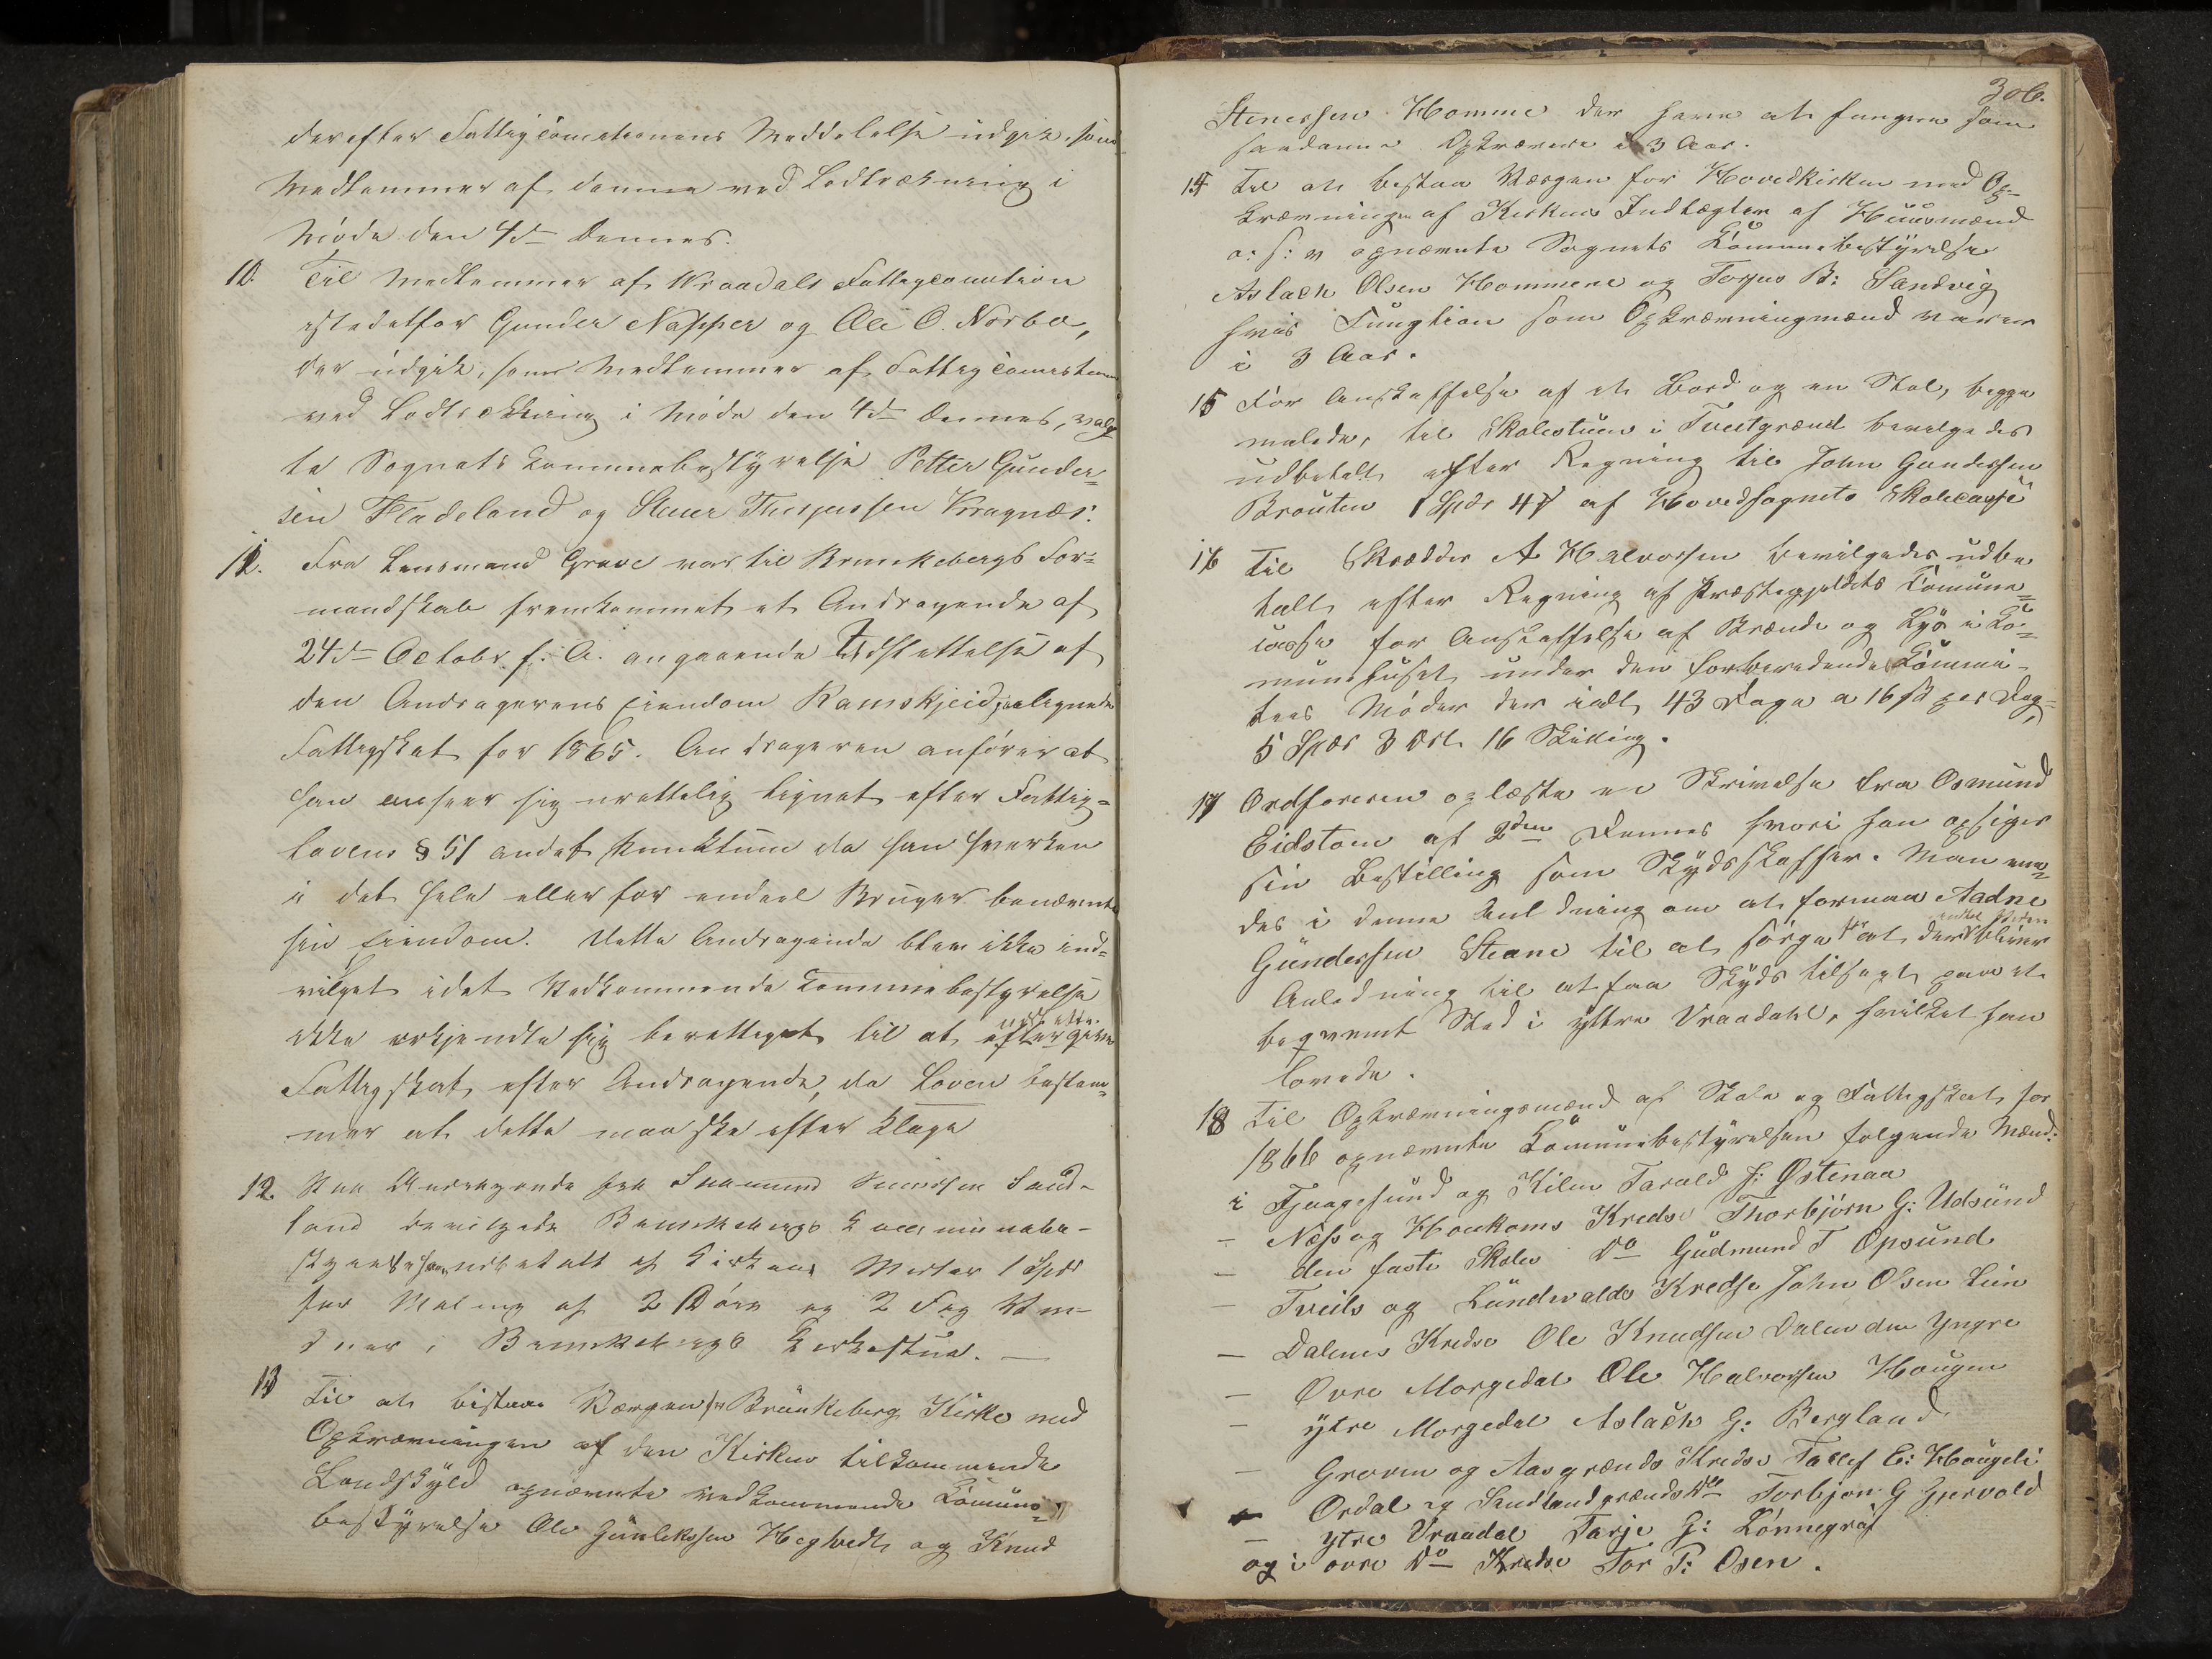 derefter Fattigcomitionens Meddelelse udgik som
Medlemmer af denne ved Lodtrækning i
Møde den 4de Dennes.
10. Til Medlemmer af Vraadals Fattigcomition
istedetfor Gunder Napper og Ole O. Norbø,
der udgik, som Medlemmer af Fattigcomistionen
ved Lodtrækning i Møde den 4de Dennes, valg
te Sognets Communebestyrelse Petter Gunder=
sen Fladeland og Stener Thorjussen Kragnæs.
11. Fra Lensmand Grave var til Brunkebergs For=
mandskab fremkommet et Andragende af
24de Octobr f. A. angaaende Udslettelse af
den Andragerens Eiendom Ramskjeid paalignede
Fattigskat for 1865. Andrageren anfører at
han anseer sig urettelig lignet efter Fattig=
lovens § 51 andet Punktum da han hverken
i det hele eller for endeel Bruger benævnte
sin Eiendom. Dette Andragende blev ikke ind=
vilget idet Vedkommende Communebestyrelse
ikke erkjendte sig berettiget til at eftergive
Fattigskat efter Andragende, da Loven bestem=
mer at dette maa ske efter Klage
12. Paa Andragende fra Saamund Sand=
land bevilgede Brunkebergs Communebe=
styrelse udbetalt af Kirkens Midler 1 Spd
for Maling af 2 Døre og 2 Fag Vin=
duer i Brunkebergs Kirkestue. —
13 Til at bistaa Værgen for Brunkeberg Kirke med
Opkrævningen af den Kirken tilkommende
Landskyld opnævnte vedkommende Commune=
bestyrelse Ole Gunleksen Heghvedt og Knud
306.
Stenersen Homme der have at fungere som
saadanne Opkrævere i 3 Aar.
14 Til at bistaa Værgen for Hovedkirken med Op=
krævningen af Kirkens Indtægter af Huusmænd
o: s: v opnævnte Sognets Communebestyrelse
Aslach Olsen Hommene og Torjus B: Sandvig
hvis Fungtion som Opkrævningmænd varer
i 3 Aar.
15 For Anskaffelse af et Bord og en Stol, begge
malede, til Skolestuen i Tveitgrænd bevilgedes
udbetalt efter Regning til John Gundersen
Brouten 1 Spdr 4 af Hovedsognets Skolecasse
16 Til Skrædder A Halvorsen bevilgedes udbe
talt efter Regning af Præstegjeldets Comune=
casse for Anskaffelse af Brænde og Lys i Co=
munehuset under den forberedende Commi=
tees Møder der ialt 43 Dage a 16 s per Dag=
5 Spdr 3 Ort 16 Skilling.
17 Ordføreren oplæste en Skrivelse fra Osmund
Eidstom af 2den Dennes hvori han opsiger
sin Bestilling som Skydsskaffer. Man
des i denne Anledning om at formaa Aadne
Gundersen Steane til at sørge for at der bliver
Anledning til at faa Skyds tilsagt paa et
beqvemt Sted i yttre Vraadahl, hvilket han
lovede.
18 Til Opkrævningsmænd af Skole og Fattigskat for
1866 opnævnte Communebestyrelsen følgende Mænd:
i Fjaagesund og Kilen Tarald J: Østenaa
— Næs og Haukoms Kredse Thorbjørn G: Udsund
— den faste Skoles Do Gudmund T Opsund
— Tveits og Lundevalds Kredse John Olsen Lien
— Dalenes Kredse Ole Knudsen Dalen den Yngre
— Øvre Morgedal Ole Halvorsen Haugen
— ytre Morgedal Aslach G: Bergland
— Groven og Aasgrænds Kredse Tallef E: Haugeli
— Ørdal og Sandlandgrænds Do Torbjøn G Gjervold
— ytre Vraadal Tarje G: Lønnegrav
og i øvre Do Kredse Tor P: Osen.